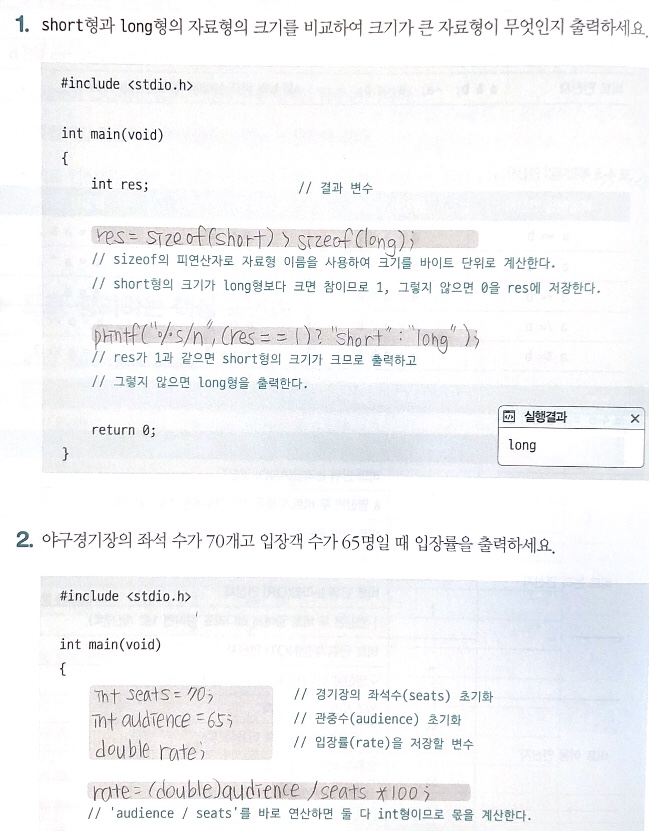 1. short형과 long형의 자료형의 크기를 비교하여 크기가 큰 자료형이 무엇인지 출력하세요.
#include <stdio.h>
int main(void)
{
int res; // 결과 변수
res = sizeof(short) > sizeof(long);
// sizeof의 피연산자로 자료형 이름을 사용하여 크기를 바이트 단위로 계산한다.
// short형의 크기가 long형보다 크면 참이므로 1, 그렇지 않으면 0을 res에 저장한다.
printf("%s/n", (res == 1) ? "short" : "long");
// res가 1과 같으면 short형의 크기가 크므로 출력하고
// 그렇지 않으면 long형을 출력한다.
return 0;
}
실행결과
long
2. 야구경기장의 좌석 수가 70개고 입장객 수가 65명일 때 입장률을 출력하세요.
#include <stdio.h>
int main(void)
{
int seats = 70; // 경기장의 좌석수(seats) 초기화
int audience = 65; // 관중수(audience) 초기화
double rate; // 입장률(rate)을 저장할 변수
rate = (double)audience / seats * 100;
// 'audience / seats'를 바로 연산하면 둘 다 int형이므로 몫을 계산한다.